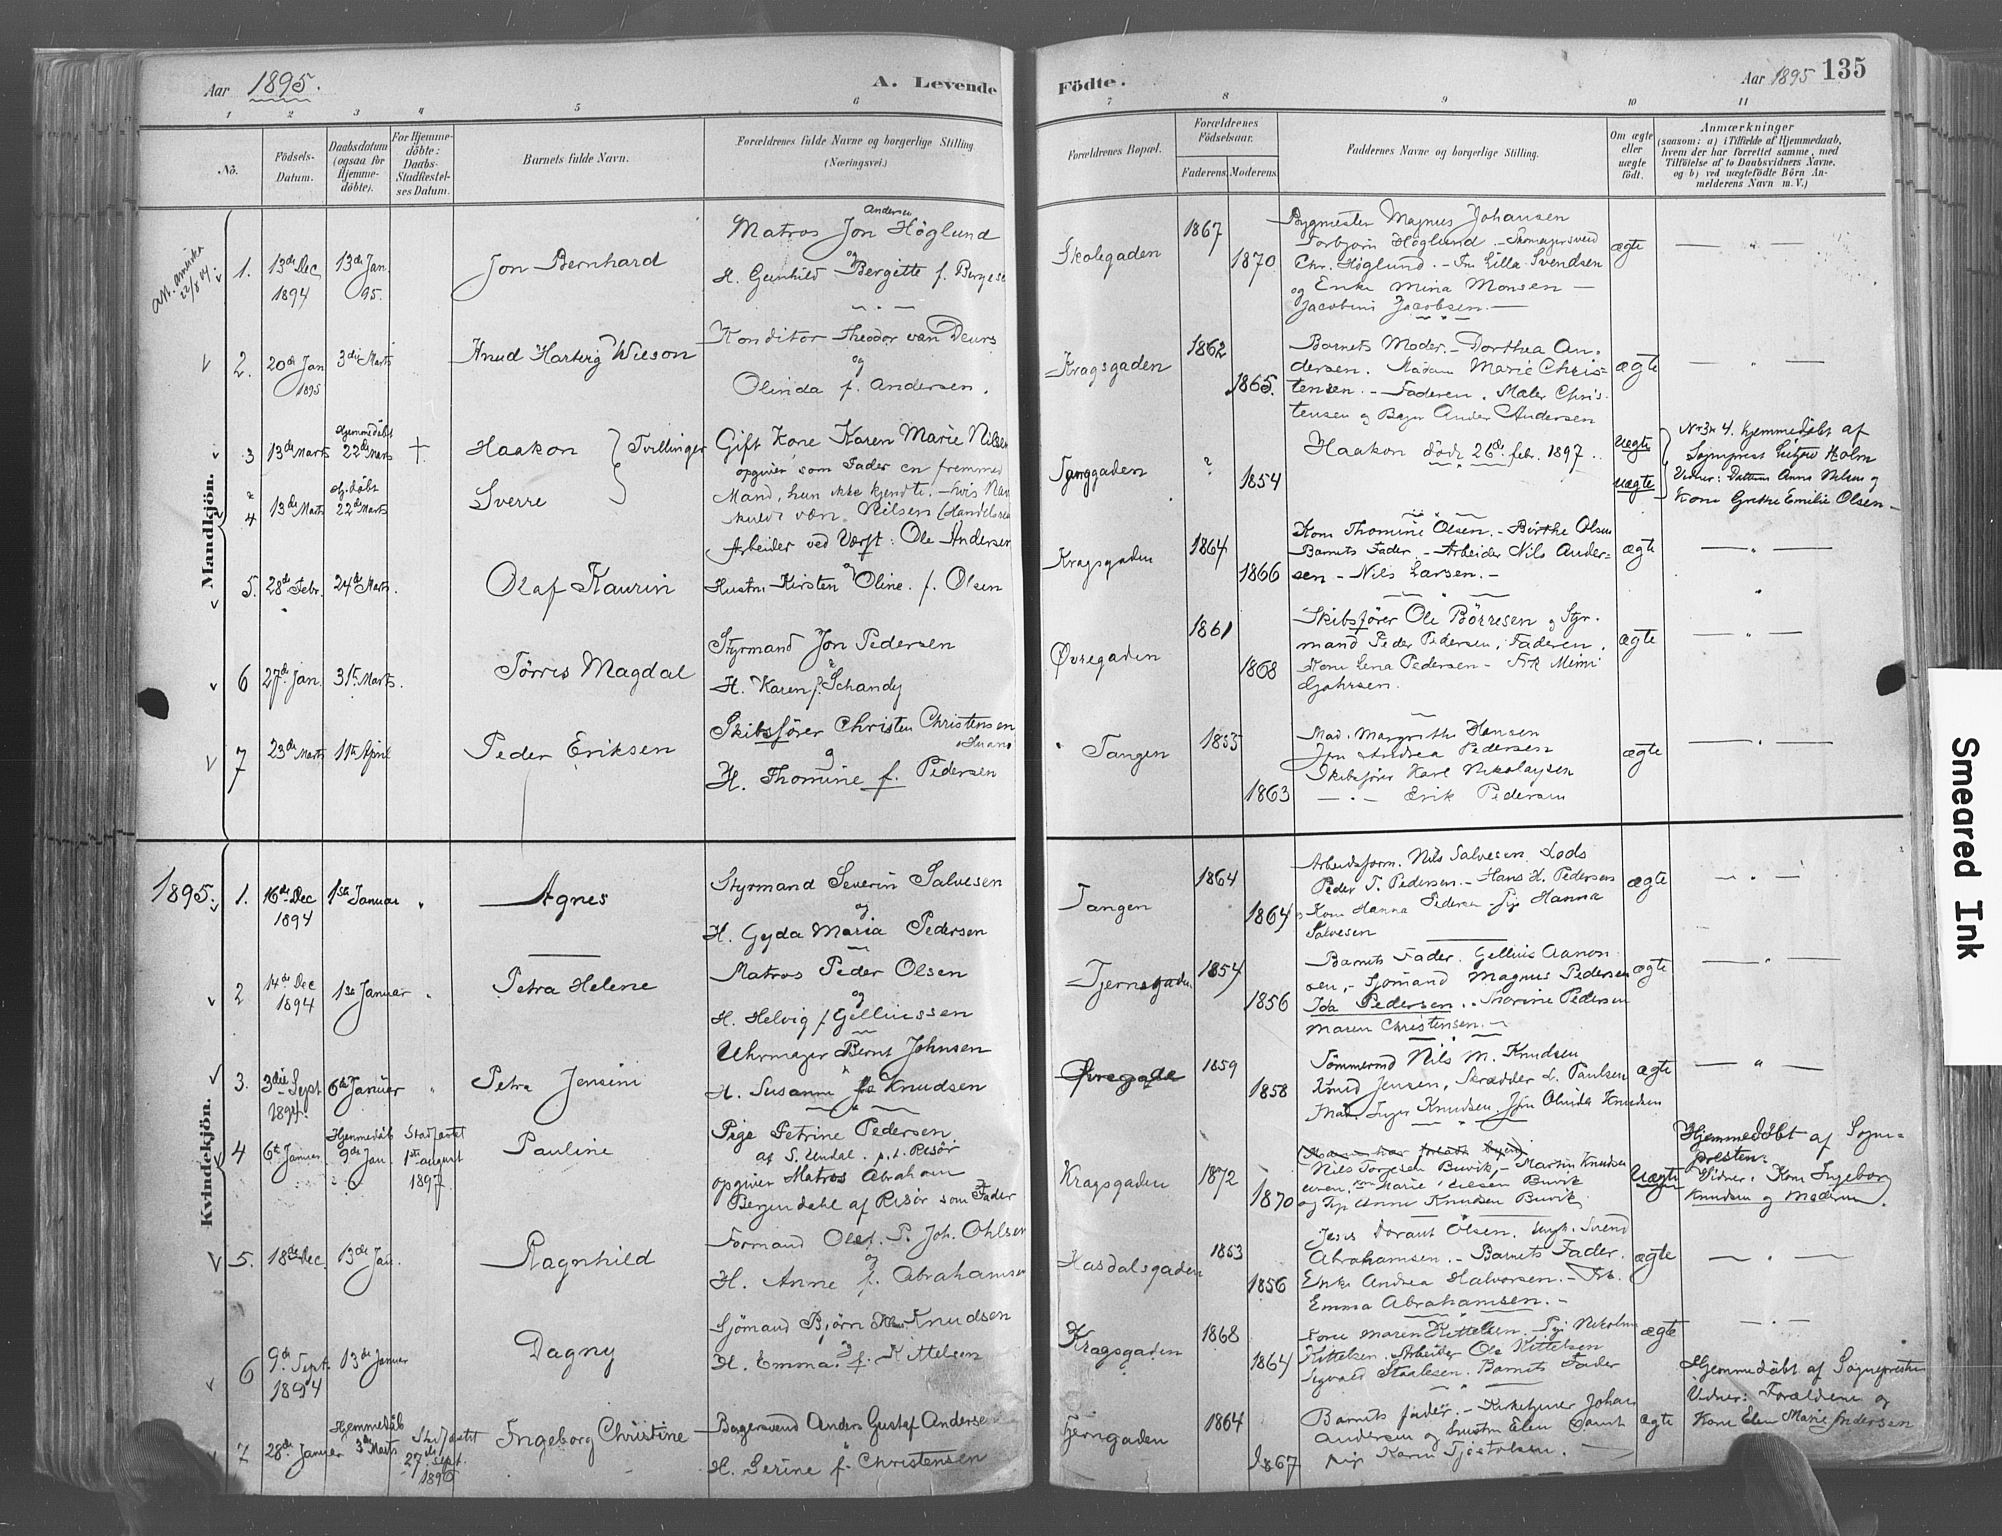 Aar 1895.
A. Levende
Fødte.
Aar 1895 135
1 2 3 4 5 6 7 8 9 10 11
No.
Födsels-
Datum.
Daabsdatum
(ogsaa for
Hjemme-
döbte).
For Hjemme-
döbte:
Daabs-
Stadfæstel-
ses Datum.
Barnets fulde Navn.
Forældrenes fulde Navne og borgerlige Stilling
(Næringsvei.)
Forældrenes Bopæl.
Forældrenes
Födselsaar.
Faderens. Moderens.
Faddernes Navne og borgerlige Stilling.
Om ægte
eller
uægte
födt.
Anmærkninger
(saasom: a) i Tilfælde af Hjemmedaab,
hvem der har forrettet samme, med
Tilföielse af to Daabsvidners Navne,
og b) ved uægtefödte Börn An-
melderens Navn m. V.)
Mandkjön.
Andersen
1. 13de Dec 1894 13de Jan. 95. Jon Bernhard
Matros Jon Höglund
og
H. Gunhild Bergitte f. Berge
Skolegaden 1867 1870
Bygmester Magnus Johansen
Torbjørn Höglund
Chr. Höglund. - Fr. Lilla Svendsen
og Enke Mina Monsen -
Jacobine Jacobsen. -
ægte
2. 20de Jan 1895 3die Marts Knud Hartvig Wilson
Konditor Theodor van Deurs
og
Olinda f. Andersen.
Kragsgaden 1862 1865.
Barnets Moder. - Dorthea An-
dersen. Madam Marie Chris-
tensen. - Faderen. Maler Chris-
tensen og Andersen
ægte
3 13de Marts Hjemmedöbt 22de Marts † Haakon } Tvillinger
4 13de Marts Hj.döbt 22de Marts Sverre
Gift Kone Karen Marie Nilsen
opgiver som Fader en fremmed
Mand, hun ikke kjendte. - hvis Navn
skulde være Nilsen
Tanggaden ? 1854
Haakon döde 26de feb. 1897.
Uægte
Uægte
No 3 & 4. hjemmedöbt af
Sognepræst Lützow Holm
Vidner: Datteren Anna Nilsen og
Kone Grethe Emilie Olsen -
5. 28de Febr. 24de Marts. Olaf Kaurin
Arbeider ved Værft: Ole Andersen
og
Hustru Kirsten Oline. f. Olsen
Kragsgaden 1864 1866
Kone Thomine Olsen. - Birthe Olsen
Barnets Fader. - Arbeider Nils Ander-
sen - Nils Larsen. -
ægte
6 27de Jan. 31te Marts. Törres Magdal
Styrmand Jon Pedersen
H. Karen f. Schandy
Øvregaden 1861 1868
Skibsfører Ole Börresen og Styr-
mand Peder Pedersen, Faderen.
Kone Lena Pedersen - Frk Mimi
ægte
7 23de Marts 11te April Peder Eriksen
Skibsfører Christen Christensen
og
H. Thomine f. Pedersen
Tangen 1855 1863
Mad. Margrethe Hansen
Andrea Pedersen
Skibsfører Karl Nikolaysen
- - Erik Pedersen
ægte
1895.
Kvindekjön.
1. 16de Dec 1894 1ste Januar Agnes
Styrmand Severin Salvesen
og
H. Gyda Maria Pedersen
Tangen 1864 1864
Arbeidsform. Nils Salvesen. Lods
Peder T. Pedersen. - Hans H. Pedersen
Kone Hanna Pedersen - Pige Hanna
Salvesen
ægte
2 14de Dec 1894 1ste Januar Petra Helene
Matros Peder Olsen
og
H. Helvig f Gelliussen
Tjernsgaden 1854 1856
Barnets Fader. Gellius Aanon-
sen, - Sjömand Magnus Pedersen
Ida Pedersen. - Pedersen
Maren Christensen. -
ægte
3. 3die Sept 1894. 6te Januar Petra Jensine
Uhrmager Bernt Johnsen
H. Susanne f. Knudsen
Øvregade 1859 1858
Tömmermd Nils M. Knudsen
Knud Jensen, Skrædder L. Paulsen
Mad. Inger Knudsen. Olinda Knudsen
ægte
4 6te Januar Hjemmedöb 9de Jan. Stadfæstet 1ste August 1897. Pauline
Pige Petrine Pedersen
af S. Undal. p.t. Risör
opgiver Matros Abraham
Bergendahl af Risör som Fader
Kragsgaden 1872 1870
Nils Torjesen Buvik, - Martin Knudsen
Marie Buvik
og Anne Knudsen Buvik
Uægte
Hjemmedöbt af Sogne-
presten.
Vidner: Kone Ingeborg
Knudsen og Moderen.
5. 18de Dec. 13de Jan. Ragnhild
Formand Olef. P. Joh. Ohlsen
og
H. Anne f. Abrahamsen
Hasdalsgaden 1853 1856
Olsen, Svend
Abrahamsen. - Barnets Fader.
Enke Andrea Halvorsen. - Frk.
Emma Abrahamsen. -
ægte
6 9de Sept. 1894 13de Januar Dagny
Sjömand Björn Knudsen
og
H. Emma. f. Kittelsen
Kragsgaden 1868 1864
Kone Maren Kittelsen. Pige Nikoline
Kittelsen. Arbeider Ole Kittelsen
Sigvald Staalesen. Barnets Fader
ægte
7 28de Januar Hjemmedöb 3de Marts Stadfæstet 27de Sept. 1896 Ingeborg Christine
Bagersvend Anders Gustaf Anderse
H. Serine f. Christensen
Tjerngaden 1864 1867
Barnets fader. - Kirketjener Johan
Andersen og hustru Elen samt
pige Karen Tjöstolsen.
ægte
Hjemmedöbt af Sognepresten
Vidner: Forældrene og
Kone Elen Marie Andersen
Smeared Ink